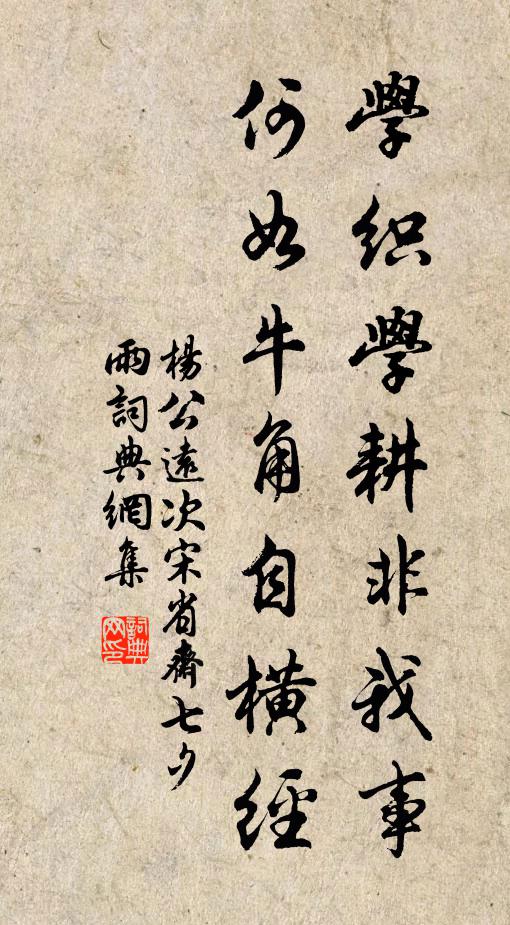 學織學耕非我事
何如牛角自橫經
楊公遠次宋省齋七夕
雨詞典網集
詞典網印